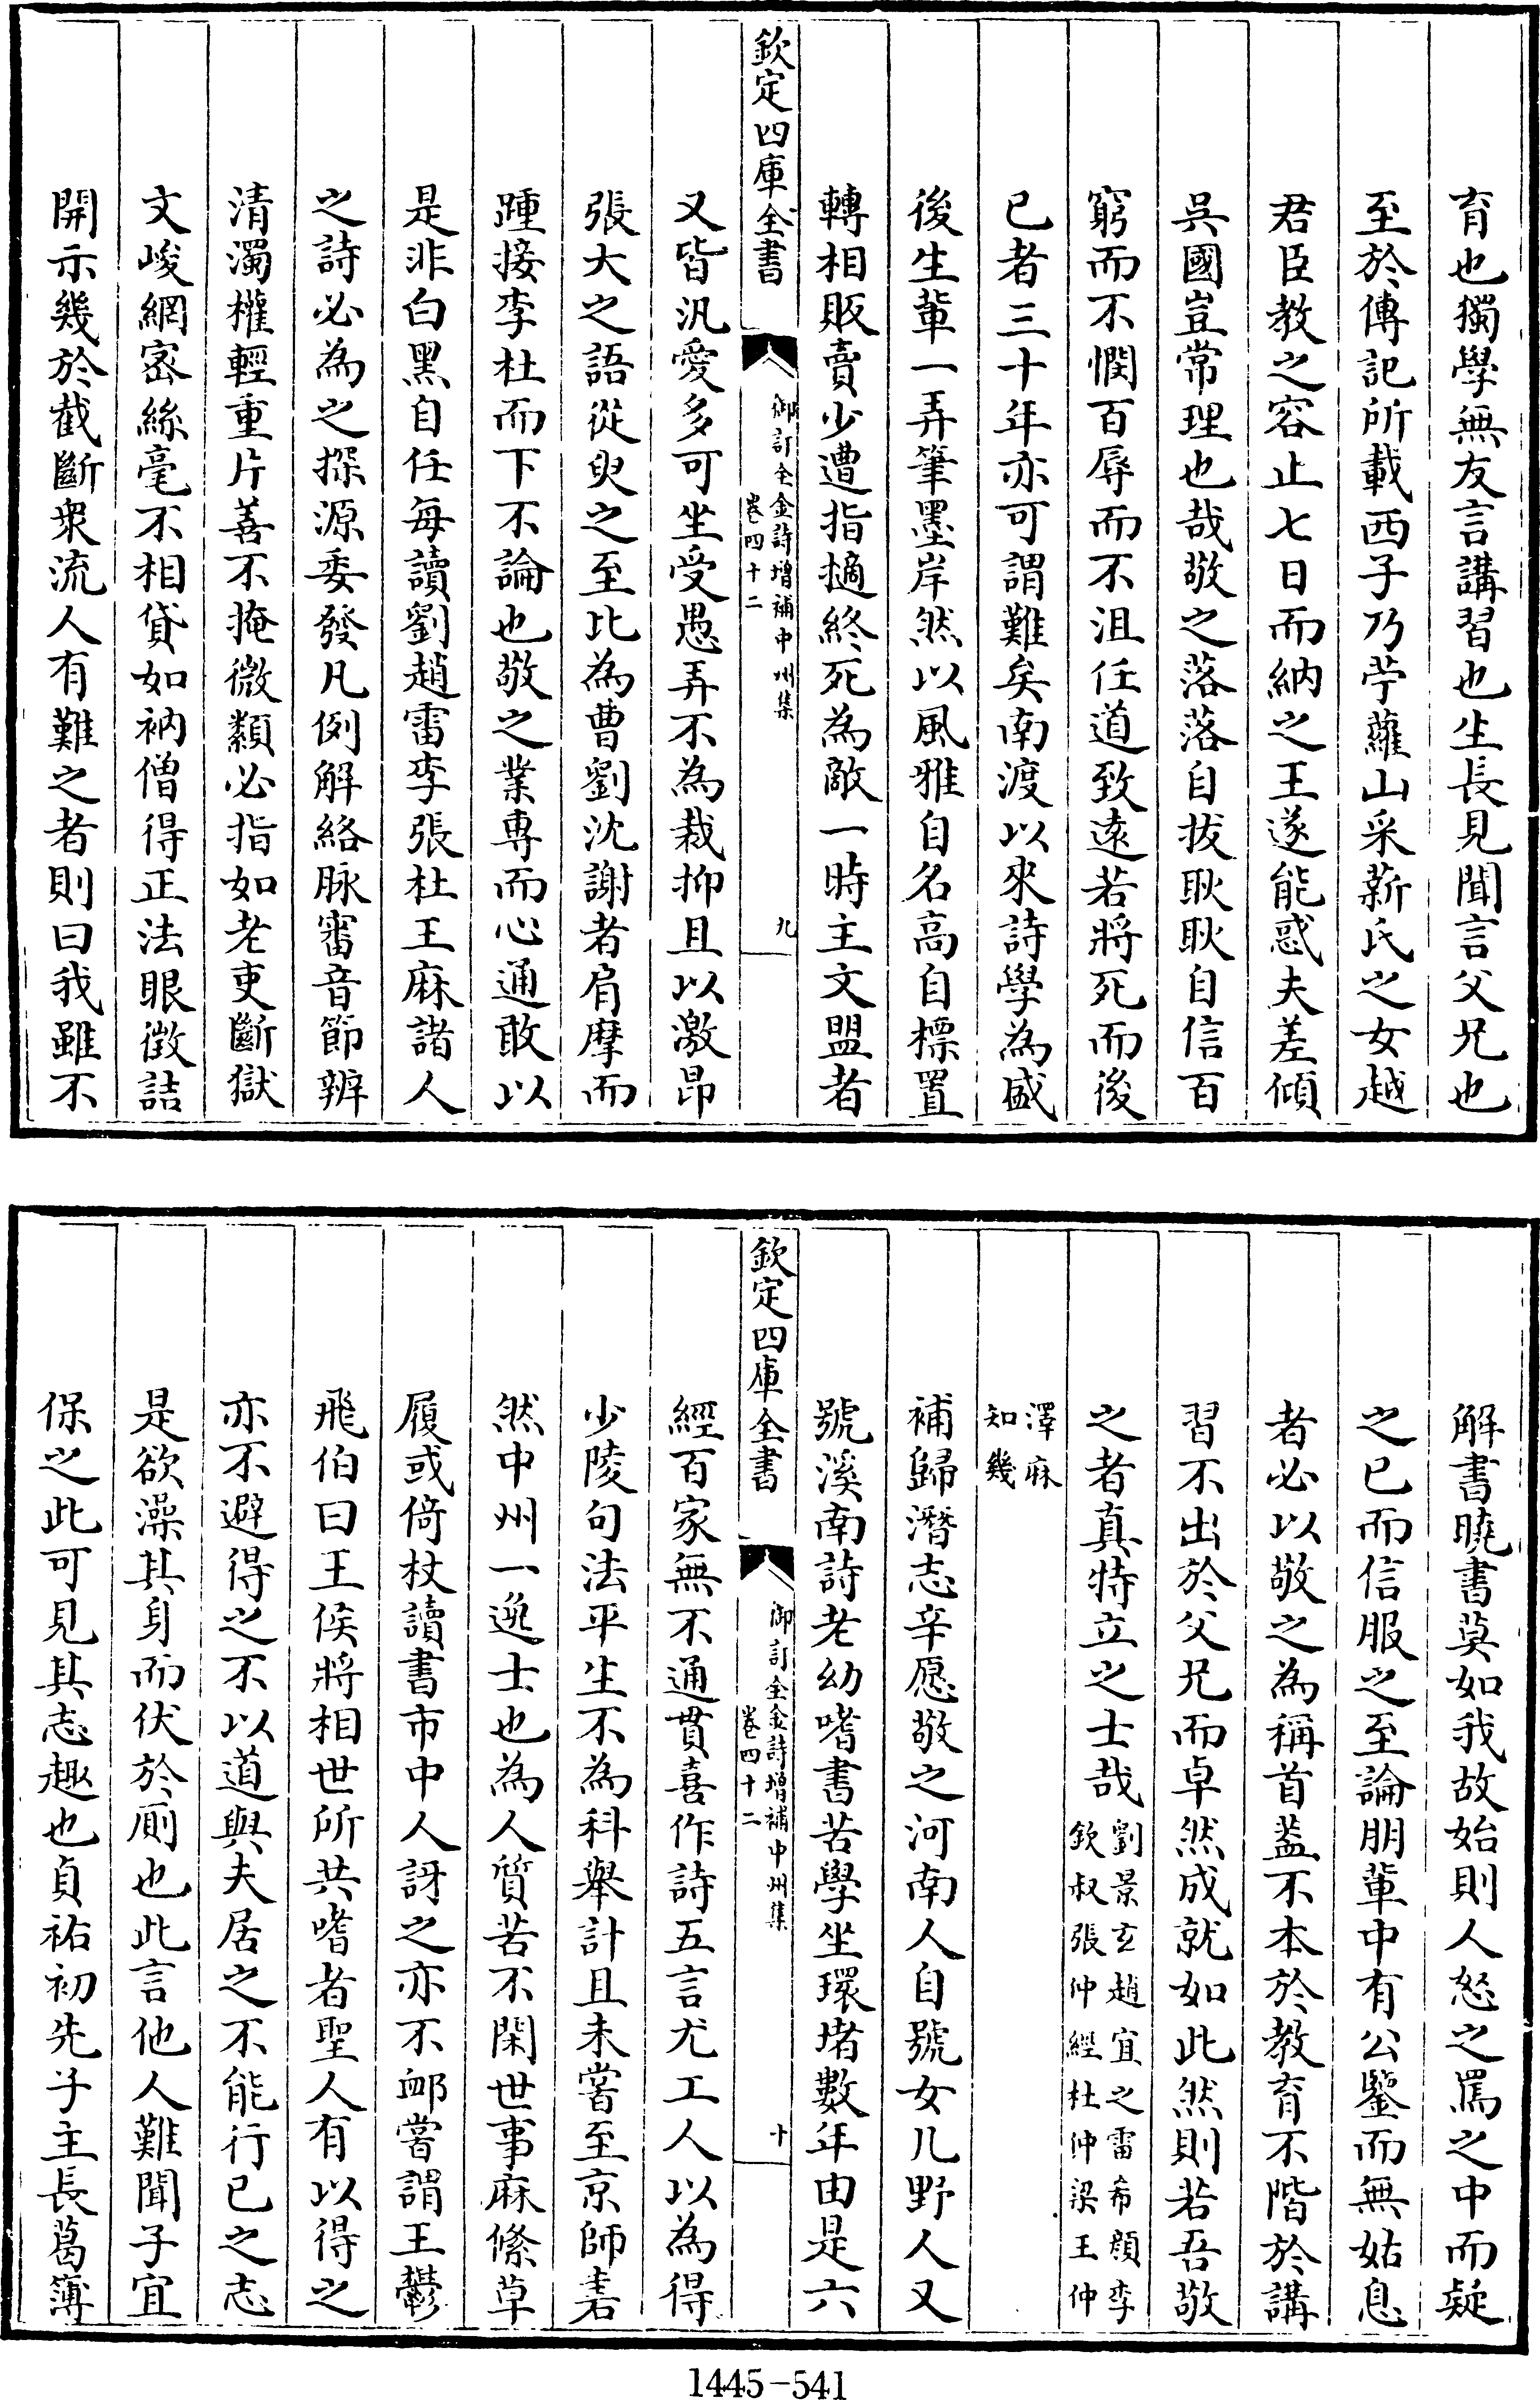 育也獨學無友言講習也生長見聞言父兄也
至於傳記所載西子乃苧蘿山采薪氏之女越
君臣教之容止七日而納之王遂能惑夫差傾
吳國豈常理也哉敬之落落自拔耿耿自信百
窮而不憫百辱而不沮任道致遠若將死而後
已者三十年亦可謂難矣南渡以來詩學為盛
後生輩一弄筆墨岸然以風雅自名高自標置
轉相販賣少遭指擿終死為敵一時主文盟者
欽定四庫全書
御訂全金詩增補中州集
卷四十二
九
又皆汎愛多可坐受愚弄不為裁抑且以激昂
張大之語從臾之至比為曹劉沈謝者肩摩而
踵接李杜而下不論也敬之業專而心通敢以
是非白黑自任每讀劉趙雷李張杜王麻諸人
之詩必為之探源委發凡例解絡脉審音節辨
清濁權輕重片善不掩微纇必指如老吏斷獄
文峻網宻絲毫不相貸如衲僧得正法眼徵詰
開示幾於截斷衆流人有難之者則曰我雖不
解書曉書莫如我故始則人怒之罵之中而疑
之已而信服之至論朋輩中有公鑒而無姑息
者必以敬之為稱首葢不本於教育不階於講
習不出於父兄而卓然成就如此然則若吾敬
之者真特立之士哉
劉景玄趙宜之雷希顔李
欽叔張仲經杜仲梁王仲
澤麻
知幾
補歸潛志辛愿敬之河南人自號女几野人又
號溪南詩老幼嗜書苦學坐環堵數年由是六
欽定四庫全書
御訂全金詩增補中州集
卷四十二
十
經百家無不通貫喜作詩五言尤工人以為得
少陵句法平生不為科舉計且未嘗至京師耆
然中州一逸士也為人質苦不閑世事麻絛草
履或倚杖讀書市中人訝之亦不衈嘗謂王鬱
飛伯曰王侯將相世所共嗜者聖人有以得之
亦不避得之不以道與夫居之不能行已之志
是欲澡其身而伏於厠也此言他人難聞子宜
保之此可見其志趣也貞祐初先子主長葛簿
1445-541